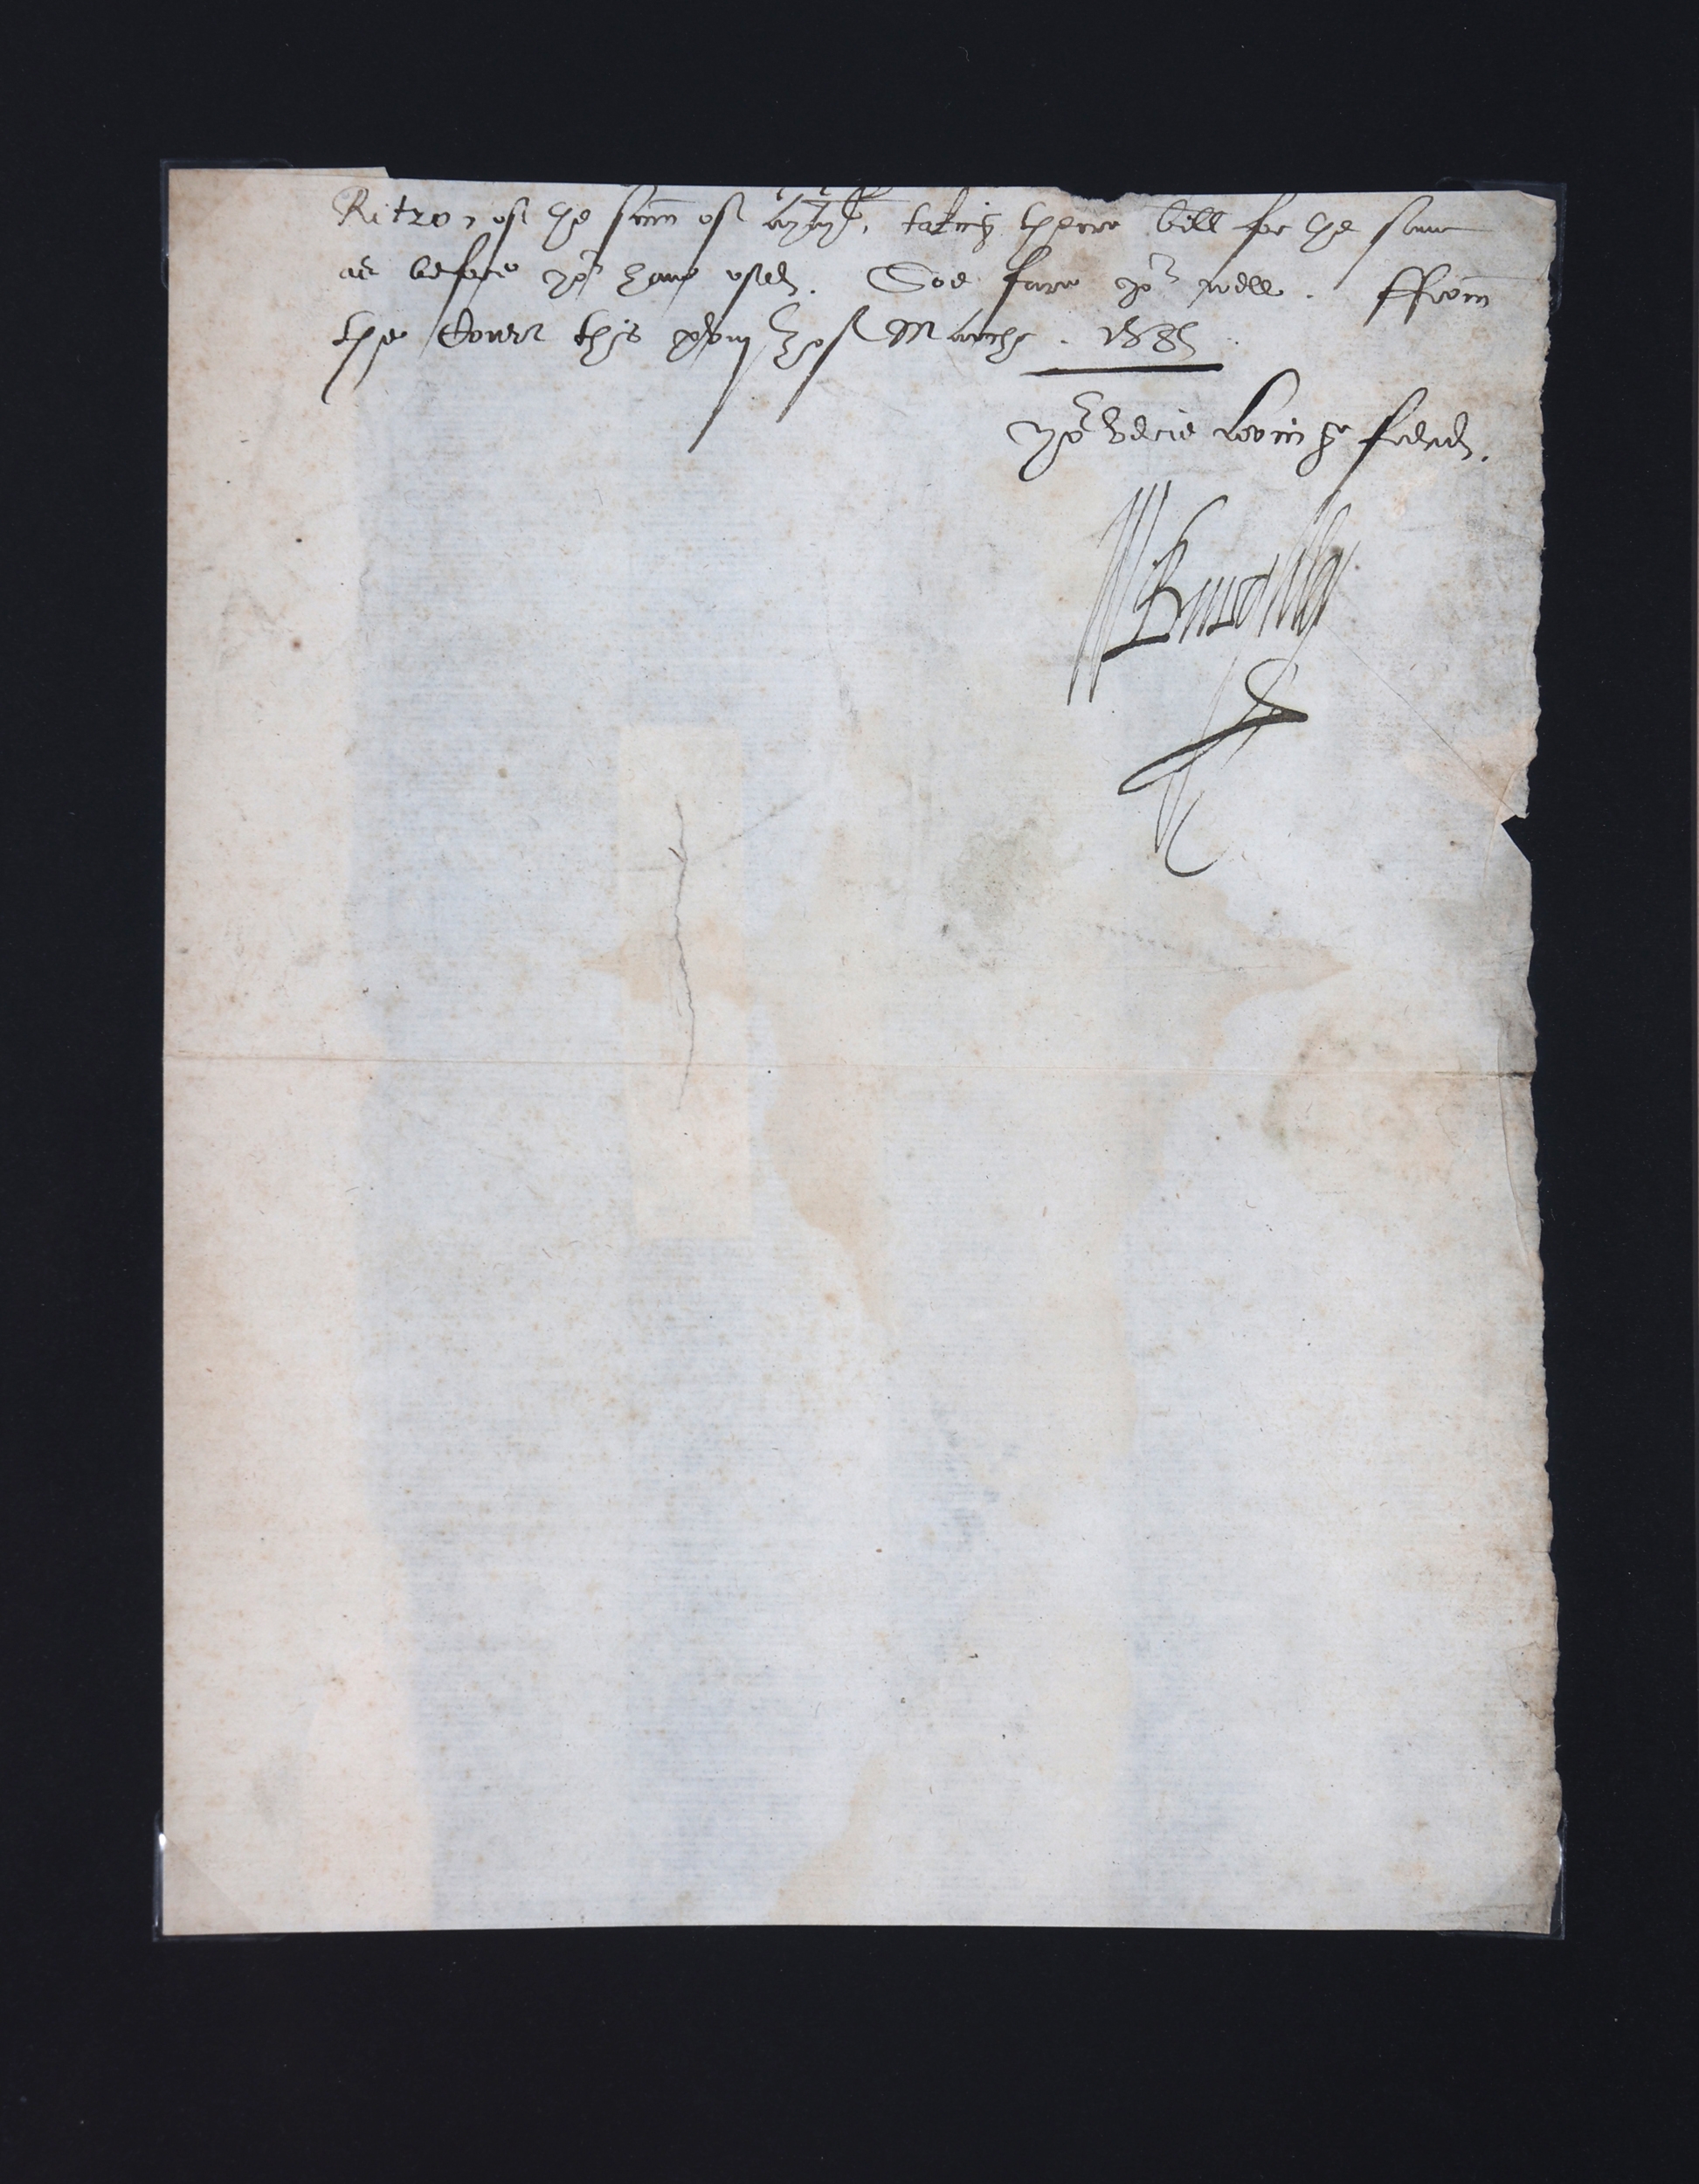 Ritzo, of the som of taking there bill for the same
as before yo^u have used. Soe fare yo^u well. ffrom
the Court this of Marche. 1585
yo^r verie loving frend.
W Burghley